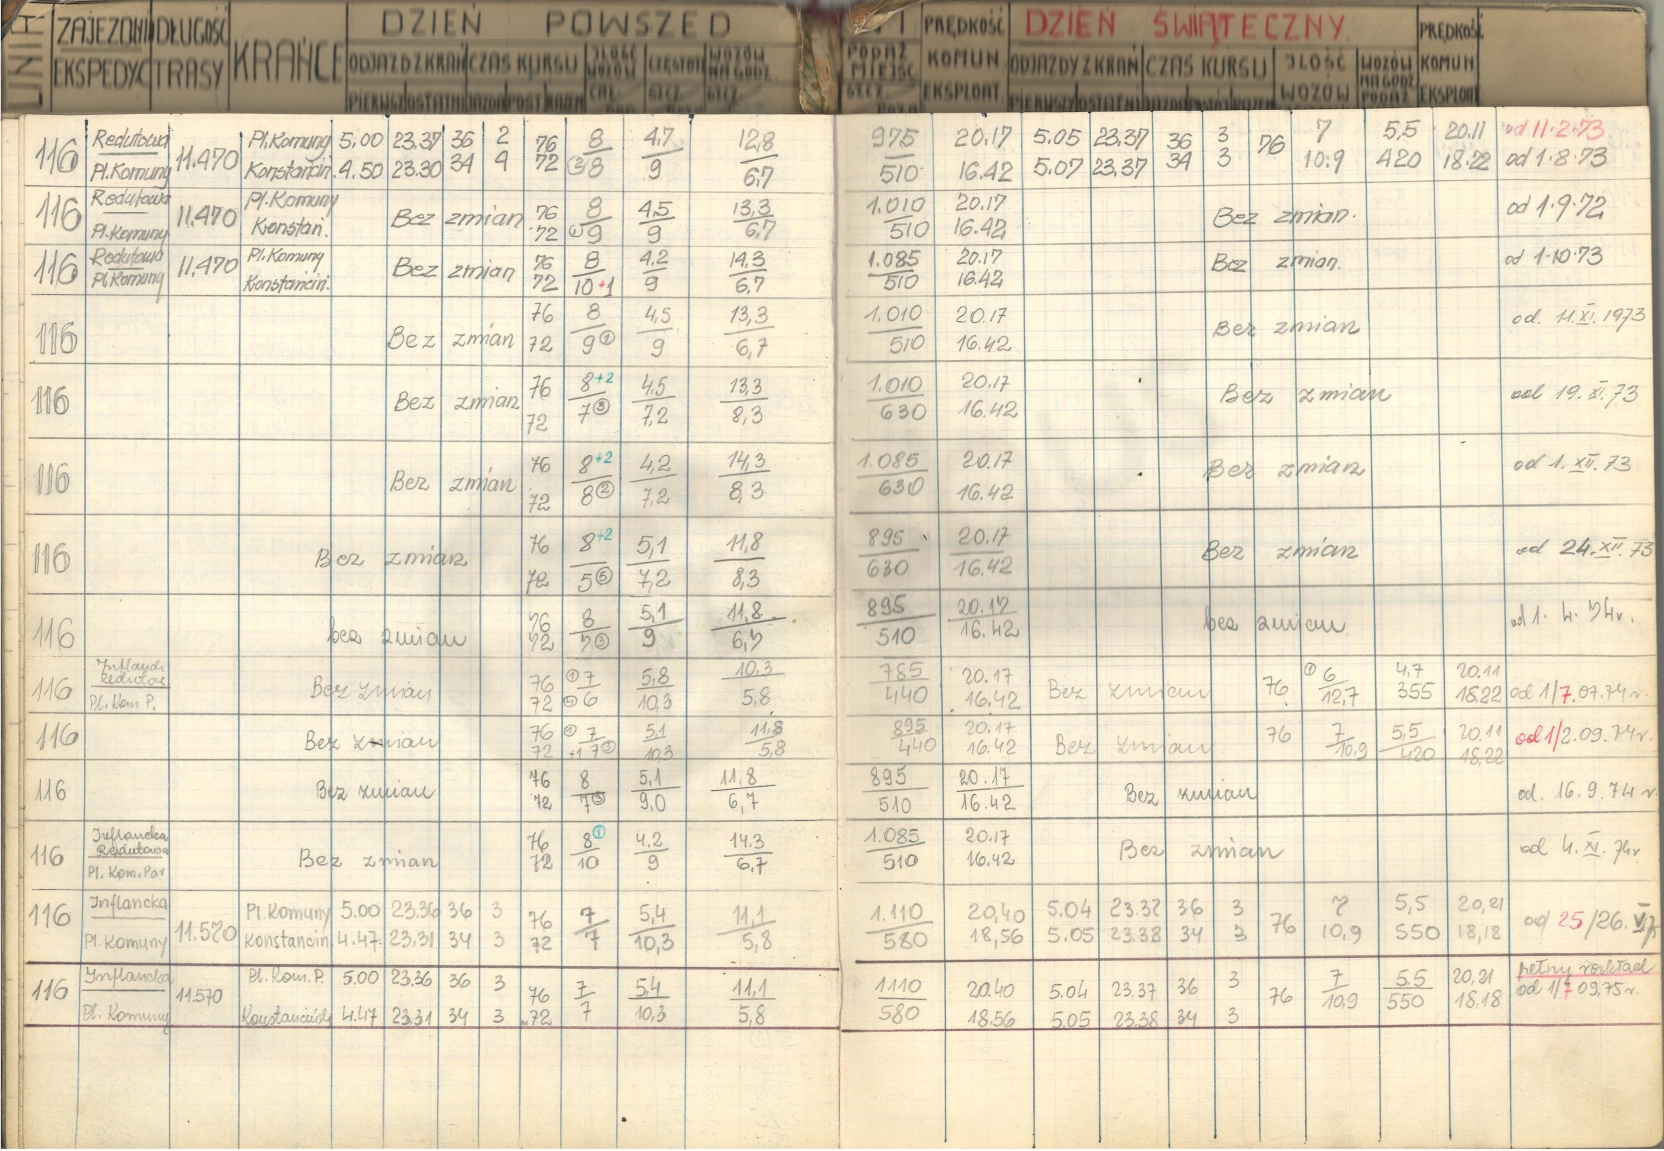 LINIA ZAJEZDNI DŁUGOŚĆ KRAŃCE DZIEŃ POWSZED
EKSPEDYC TRASY
ODJAZDZ KRAŃ CZAS KURSU ILOŚĆ WOZÓW CZĘSTOT WOZÓW NA GODZ.
PIERWSZ OSTATNI JAZDA POST. RAZEM SZCZ. SZCZ.
NI PRĘDKOŚĆ DZIEŃ ŚWIĄTECZNY PRĘDKOŚĆ
PODAŻ MIEJSC KOMUN ODJAZDY Z KRAŃ CZAS KURSU ILOŚĆ WOZÓW WOZÓW NA GODZ PODAŻ KOMUN
SZCZ. EKSPLOAT. PIERWSZY OSTATNI EKSPLOAT
116 Redutowa 11.470 Pl.Komuny 5.00 23.37 36 2 76 8 4,7 12,8 975 20.17 5.05 23.37 36 3 76 7 5,5 20.11 od 11.2.73
Pl.Komuny Konstancin. 4.50 23.30 34 4 72 8 9 6,7 510 16.42 5.07 23.37 34 3 10.9 420 18.22 od 1.8.73
116 Redutowa 11.470 Pl.Komuny Bez zmian 76 8 4,5 13,3 1.010 20.17 Bez zmian. od 1.9.72
Pl.Komuny Konstan. 72 9 9 6,7 510 16.42
116 Redutowa 11.470 Pl.Komuny Bez zmian 76 8 4.2 14,3 1.085 20.17 Bez zmian. od 1.10.73
Pl.Komuny Konstancin. 72 10+1 9 6,7 510 16.42
116 Bez zmian 76 8 4,5 13,3 1.010 20.17 Bez zmian od. 11.XI.1973
72 9 ① 9 6,7 510 16.42
116 Bez zmian 76 8+2 4,5 13,3 1.010 20.17 Bez zmian od 19.XI.73
72 7 ③ 7,2 8,3 630 16.42
116 Bez zmian 76 8+2 4,2 14,3 1.085 20.17 Bez zmian od 1.XII.73
72 8 ② 7,2 8,3 630 16.42
116 Bez zmian 76 8+2 5,1 11,8 895 20.17 Bez zmian od 24.XII.73
72 5 ⑤ 7,2 8,3 630 16.42
116 bez zmian 76 8 5,1 11,8 895 20.17 bez zmian od 1. 4. 74r.
72 7 ③ 9 6,7 510 16.42
116 Redutow 76 ① 7 5,8 10,3 785 20.17 76 ① 6 4,7 20.11
Pl. Kom P. Bez zmian 72 6 10,3 5,8 440 16.42 Bez zmian 12,7 355 18.22 od 1/7.07.74r.
116 Bez zmian 76 ① 7 5,1 11,8 895 20.17 Bez zmian 76 7 5,5 20.11 od 1/2.09.74r.
72 +1 7 10,3 5,8 440 16.42 10,9 420 18,22
116 Bez zmian 76 8 5,1 11,8 895 20.17 Bez zmian od. 16.9.74 r.
72 7 9,0 6,7 510 16.42
116 Inflancka Redutowa Bez zmian 76 8 ① 4.2 14.3 1.085 20.17 Bez zmian od 4.XI.74r
Pl. Kom. Par 72 10 9 6,7 510 16.42
116 Inflancka 11.570 Pl.Komuny 5.00 23.36 36 3 76 7 5,4 11,1 1.110 20,40 5.04 23.37 36 3 76 7 5,5 20,21 od 25/26.
Pl. Komuny Konstancin. 4.47. 23,31 34 3 72 7 10,3 5,8 580 18,56 5.05 23.38 34 3 10,9 550 18,18
116 Inflancka 11.570 Pl. Kom. P. 5.00 23.36 36 3 76 7 5,4 11,1 1110 20.40 5.04 23.37 36 3 76 7 5.5 20,21 pełny rozkład
Pl. Komuny 4.47 23.31 34 3 72 7 10,3 5,8 580 18.56 5.05 23.38 34 3 10,9 550 18,18 od 1/ 09.75r.